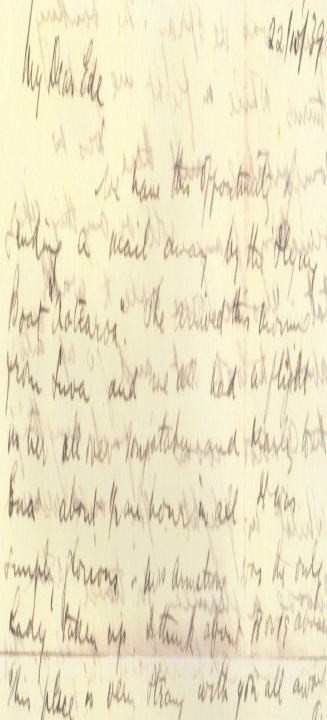 22/10/39
My Dear Ede
We have this opportunity of
sending a mail away by the Flying
Boat "Aotearoa". She arrived this morning
from Suva and we all had a flight
in her all over Tongatabu and
Eua about ½ an hour in all. It was
simply glorious. Miss Armstrong was the only
Lady taken up I think about
This place is very strange with you all away